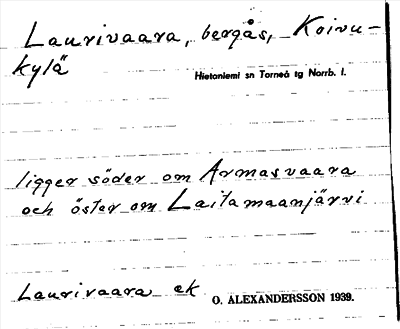 Laurivaara, bergås, Koivu-
kylä
Hietaniemi sn Torneå tg Norrb. l.
ligger söder om Armasvaara
och öster om Laitamaanjärvi
Laurivaara ek
O. ALEXANDERSSON 1939.